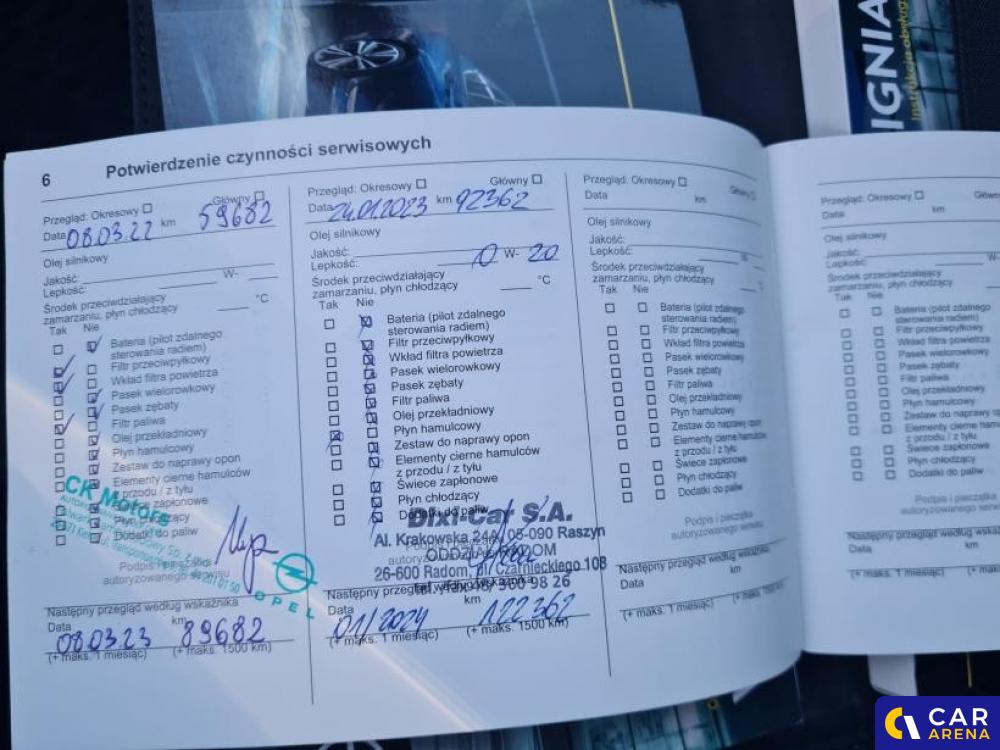 IGNIA
Instrukcja obsługi
6
Potwierdzenie czynności serwisowych
Przegląd: Okresowy
Główny
Data 08.03.22 km 59682
Olej silnikowy
Jakość:
Lepkość: W-
Środek przeciwdziałający
zamarzaniu, płyn chłodzący °C
Tak Nie
Bateria (pilot zdalnego
sterowania radiem)
Filtr przeciwpyłkowy
Wkład filtra powietrza
Pasek wielorowkowy
Pasek zębaty
Filtr paliwa
Olej przekładniowy
Płyn hamulcowy
Zestaw do naprawy opon
Elementy cierne hamulców
z przodu / z tyłu
Świece zapłonowe
Płyn chłodzący
Dodatki do paliw
CK Motors
Podpis i pieczątka
autoryzowanego serwisu
OPEL
Następny przegląd według wskaźnika
Data km
08.03.23 89682
(+ maks. 1 miesiąc) (+ maks. 1500 km)
Przegląd: Okresowy Główny
Data 24.01.2023 km 92362
Olej silnikowy
Jakość:
Lepkość: 0 W- 20
Środek przeciwdziałający
zamarzaniu, płyn chłodzący °C
Tak Nie
Bateria (pilot zdalnego
sterowania radiem)
Filtr przeciwpyłkowy
Wkład filtra powietrza
Pasek wielorowkowy
Pasek zębaty
Filtr paliwa
Olej przekładniowy
Płyn hamulcowy
Zestaw do naprawy opon
Elementy cierne hamulców
z przodu / z tyłu
Świece zapłonowe
Płyn chłodzący
Dodatki do paliw
Dixi-Car S.A.
Al. Krakowska 24A, 05-090 Raszyn
ODDZIAŁ RADOM
26-600 Radom, pl. Czarnieckiego 10B
Następny przegląd według wskaźnika
Data km
01/2024 122362
(+ maks. 1 miesiąc) (+ maks. 1500 km)
Przegląd: Okresowy Główny
Data km
Olej silnikowy
Jakość:
Lepkość: W-
Środek przeciwdziałający
zamarzaniu, płyn chłodzący °C
Tak Nie
Bateria (pilot zdalnego
sterowania radiem)
Filtr przeciwpyłkowy
Wkład filtra powietrza
Pasek wielorowkowy
Pasek zębaty
Filtr paliwa
Olej przekładniowy
Płyn hamulcowy
Zestaw do naprawy opon
Elementy cierne hamulców
z przodu / z tyłu
Świece zapłonowe
Płyn chłodzący
Dodatki do paliw
Podpis i pieczątka
autoryzowanego serwisu
Następny przegląd według wskaźnika
Data km
(+ maks. 1 miesiąc)
Przegląd: Okresowy
Data km
Olej silnikowy
Jakość:
Lepkość:
Środek przeciwdziałający
zamarzaniu, płyn chłodzący
Tak Nie
Bateria (pilot zdalnego
sterowania radiem)
Filtr przeciwpyłkowy
Wkład filtra powietrza
Pasek wielorowkowy
Pasek zębaty
Filtr paliwa
Olej przekładniowy
Płyn hamulcowy
Zestaw do naprawy opon
Elementy cierne
z przodu / z tyłu
Świece zapłonowe
Płyn chłodzący
Dodatki do paliw
Podpis i pieczątka
autoryzowanego
Następny przegląd według
Data km
(+ maks. 1 miesiąc)
CAR
ARENA